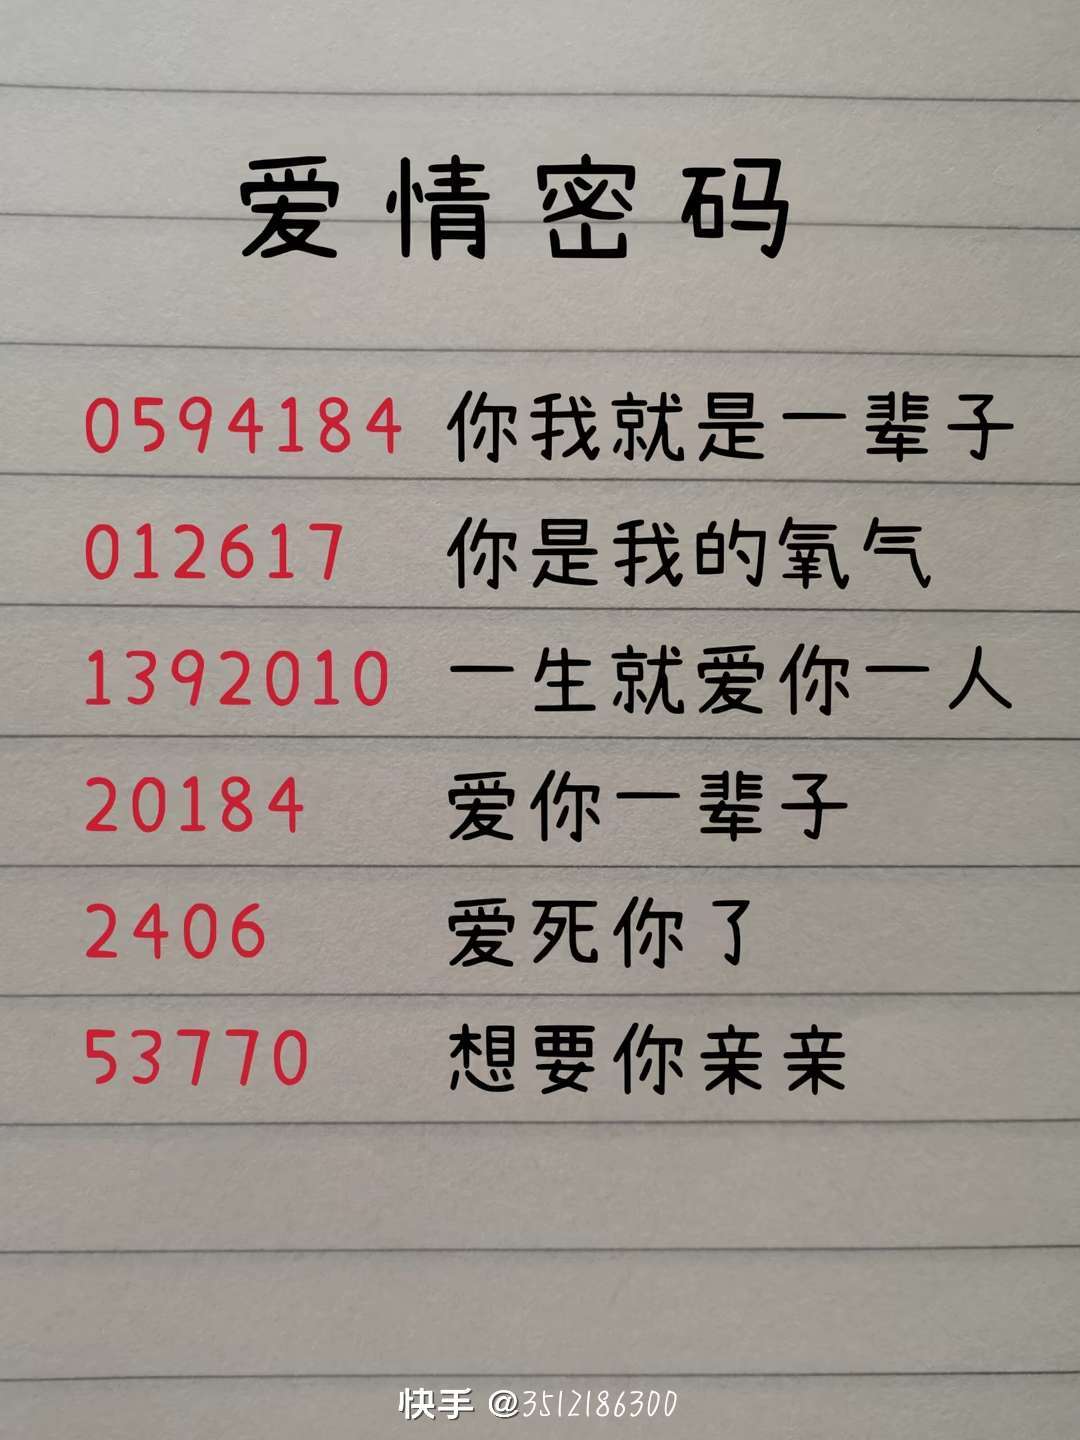 爱情密码
0594184 你我就是一辈子
012617 你是我的氧气
1392010 一生就爱你一人
20184 爱你一辈子
2406 爱死你了
53770 想要你亲亲
快手 @3512186300